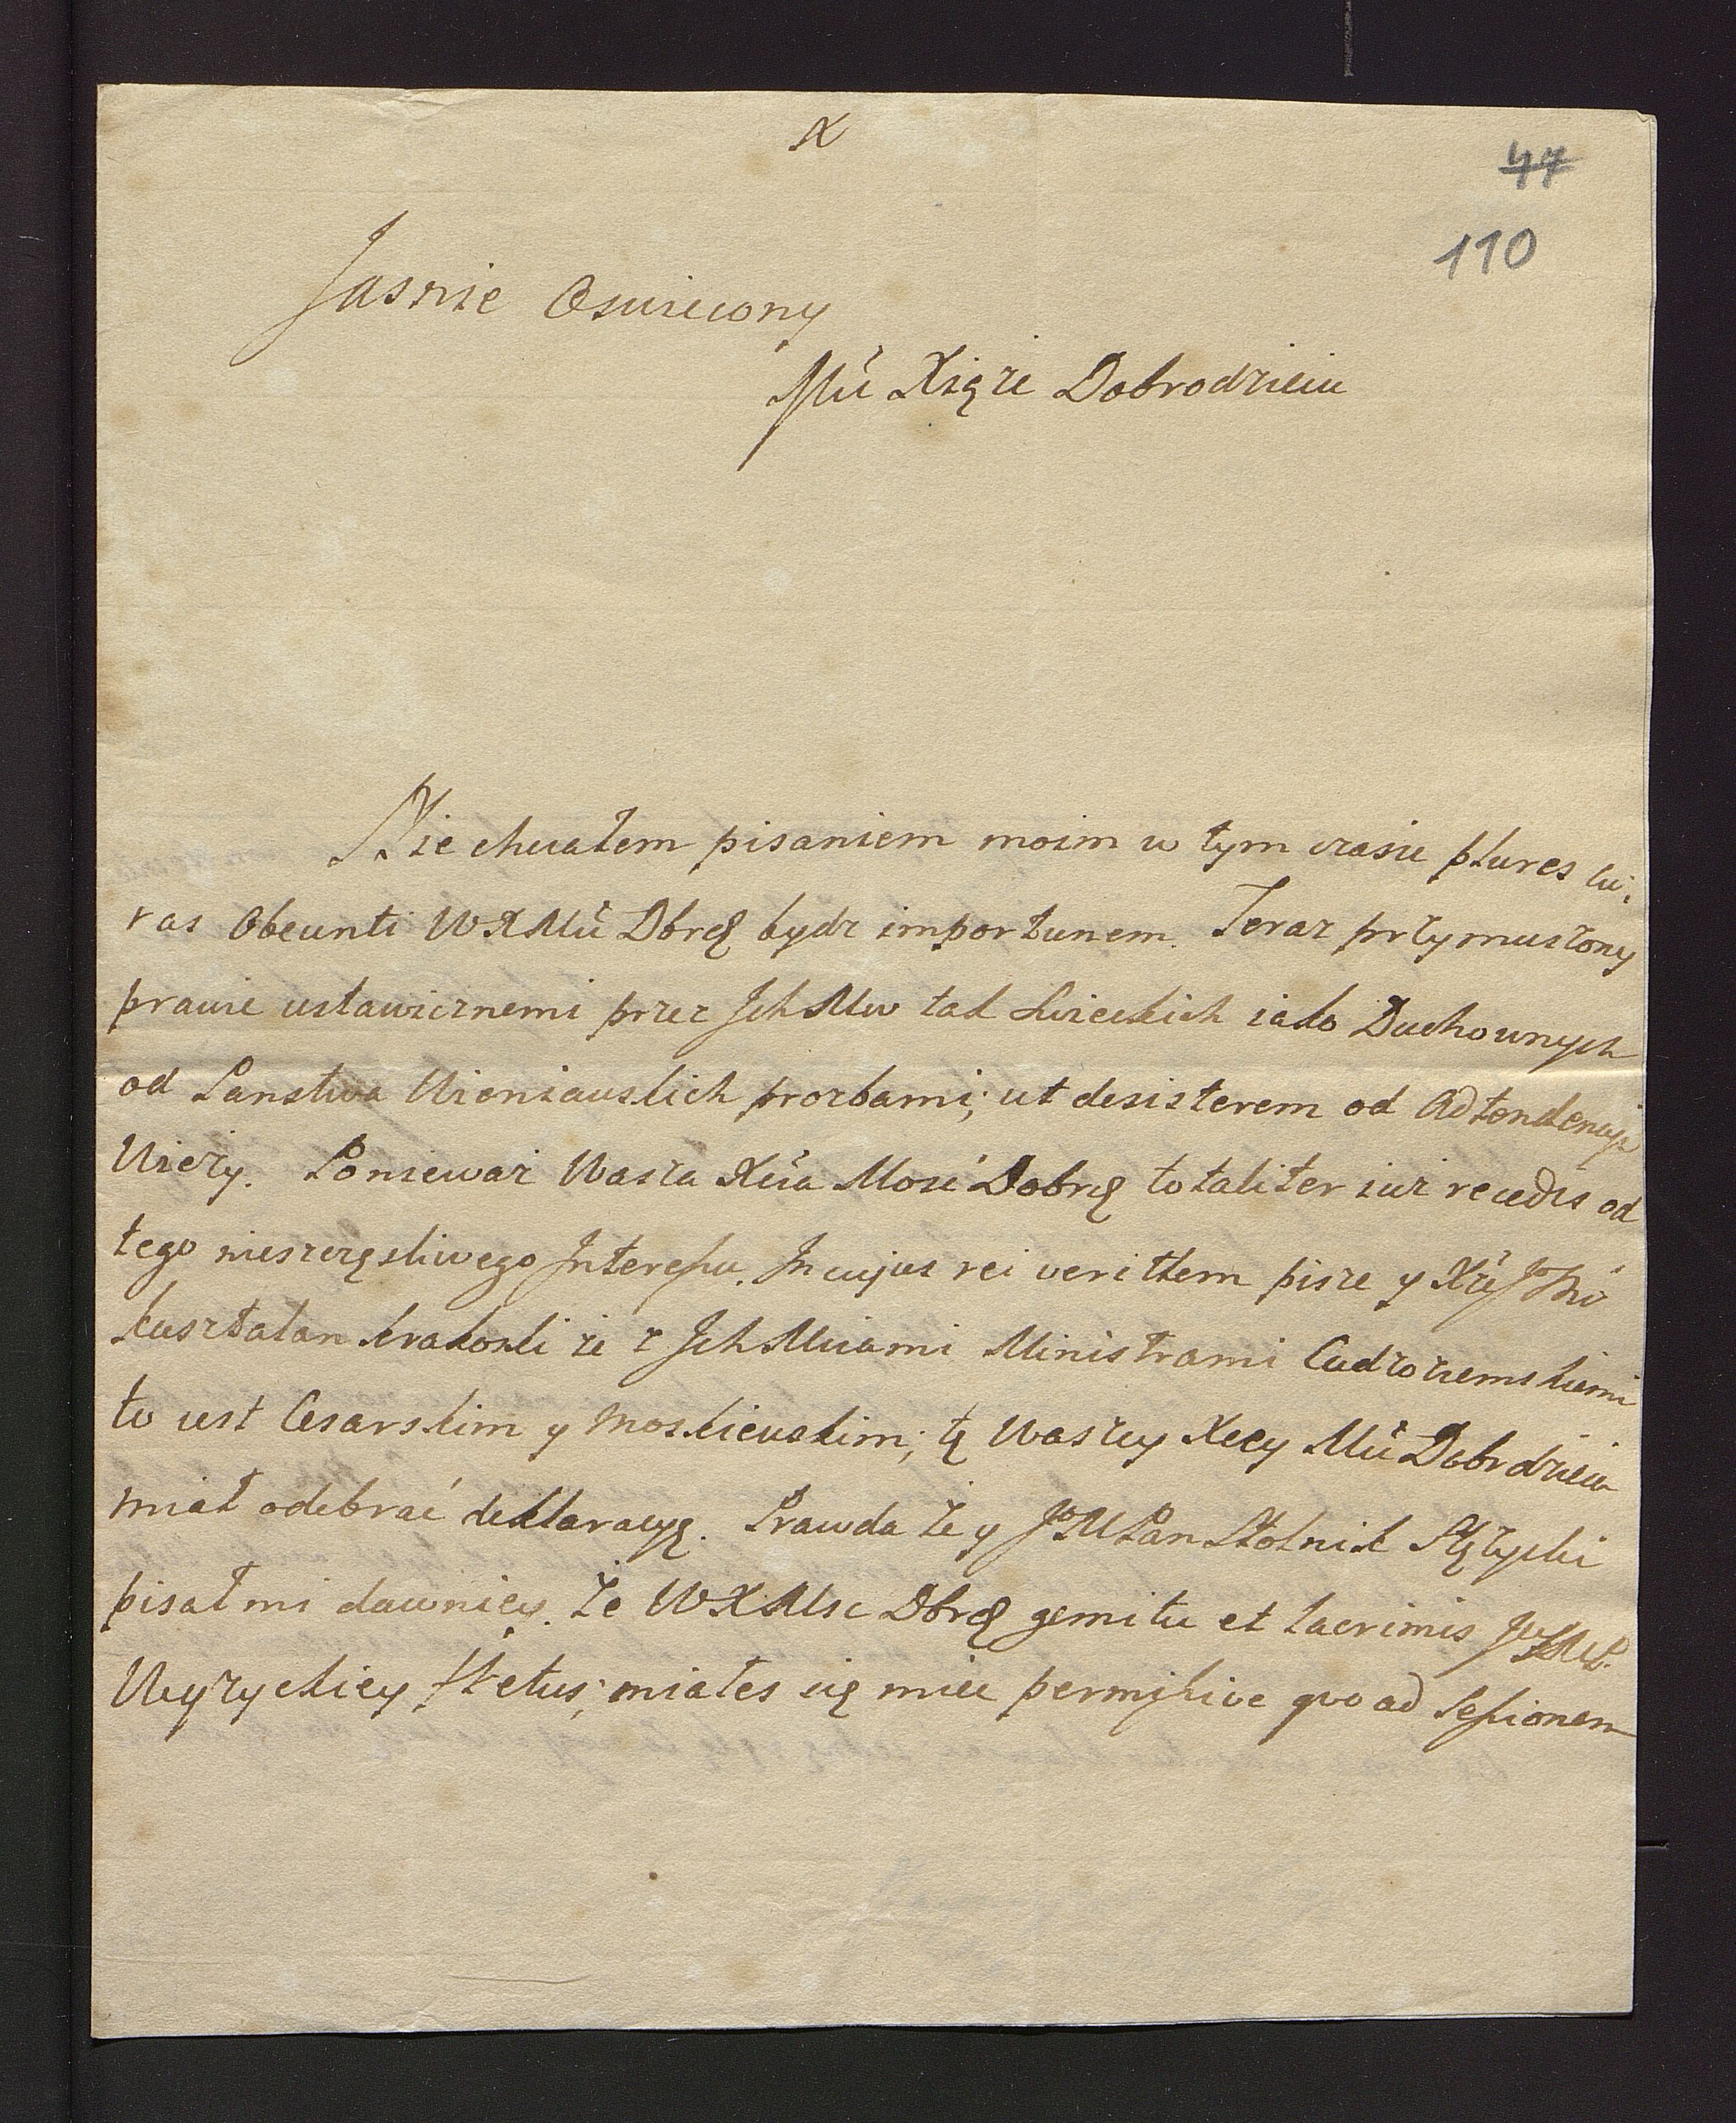 X
47
110
Jasnie Oswiecony
Mći Xiąże Dobrodzieiu
Nie chciałem pisaniem moim w tym czasie plures cu:
ras Obeunti WXMći Dbrę bydz importunem. Teraz przymuszony
prawie ustawicznemi przez Jch Mćiow tak Swieckich iako Duchownych
od Panstwa Wieniawskich prozbami; ut desisterem od
Wiezy. Poniewaz Wasza Xća Mosć Dobrę totaliter iuż recedis od
tego nieszczęsliwego Interessu. In cujus rei verittem pisze y Xże JMć
kasztalan krakoski że z Jch Mćiami Ministrami Cudzoziemskiemi
to iest Cesarskim y Moskiewskim; tę Waszey Xcey Mći Dobrdzieia
miał odebrać deklaracyę. Prawda że y JMPan Stolnik Stężycki
pisał mi dawniey. że WXMsc Dbrę gemitu et lacrimis
Wyżyckiey flectus; miałes się miec permissive quo ad Sessionem